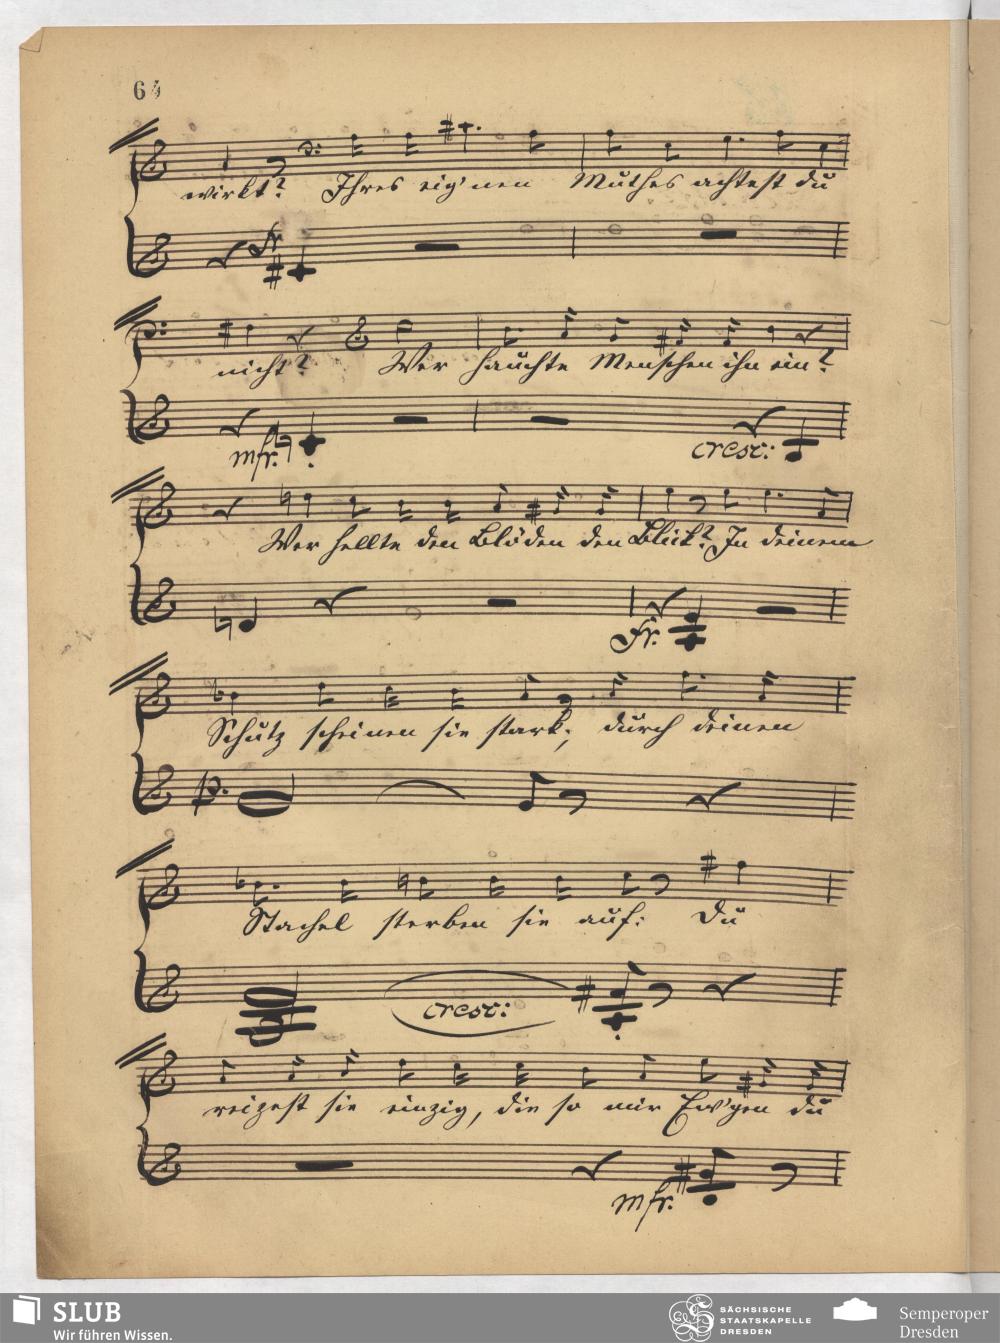 64
wirkt? Ihres eig'nen Muthes achtest du
fr
nicht? Wer hauchte Menschen ihn ein?
mfr. cresc:
Wer hellte den Blöden den Blick? In deinem
fr.
Schutz scheinen sie stark, durch deinen
p.
Stachel streben sie auf: Du
cresc:
reizest sie einzig, die so mir Ew'gen du
mfr.
SLUB
Wir führen Wissen.
SÄCHSISCHE
STAATSKAPELLE
DRESDEN
Semperoper
Dresden